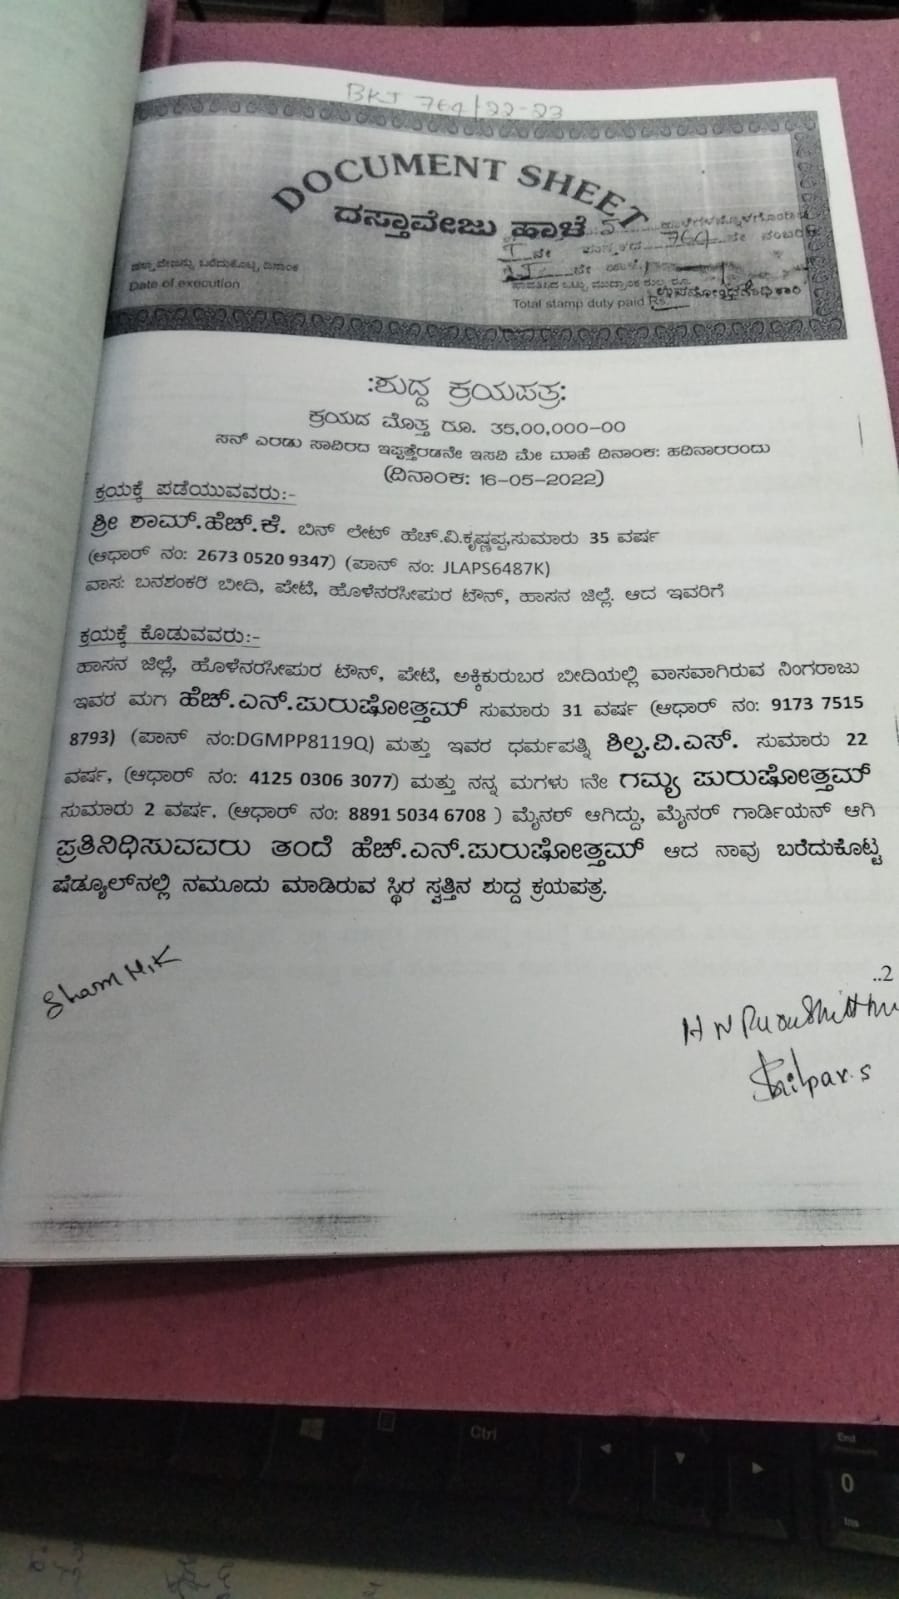 BKI 764/22-23
DOCUMENT SHEET
ದಸ್ತಾವೇಜು ಹಾಳೆ
5 ಹಾಳೆಗಳನ್ನೊಳಗೊಂಡ
I ನೇ ಪುಸ್ತಕದ 764 ನೇ ನಂಬರಿನ
ನೇ ಹಾಳೆ
ದಸ್ತಾವೇಜನ್ನು ಬರೆದುಕೊಟ್ಟ ದಿನಾಂಕ
Date of execution
ಪಾವತಿಸಿದ ಒಟ್ಟು ಮುದ್ರಾಂಕ ಶುಲ್ಕ ರೂ.
ಉಪನೋಂದಣಾಧಿಕಾರಿ
Total stamp duty paid Rs.
:ಶುದ್ಧ ಕ್ರಯಪತ್ರ:
ಕ್ರಯದ ಮೊತ್ತ ರೂ. 35,00,000-00
ಸನ್ ಎರಡು ಸಾವಿರದ ಇಪ್ಪತ್ತೆರಡನೇ ಇಸವಿ ಮೇ ಮಾಹೆ ದಿನಾಂಕ: ಹದಿನಾರರಂದು
(ದಿನಾಂಕ: 16-05-2022)
ಕ್ರಯಕ್ಕೆ ಪಡೆಯುವವರು:-
ಶ್ರೀ ಶಾಮ್.ಹೆಚ್.ಕೆ. ಬಿನ್ ಲೇಟ್ ಹೆಚ್.ವಿ.ಕೃಷ್ಣಪ್ಪ,ಸುಮಾರು 35 ವರ್ಷ
(ಆಧಾರ್ ನಂ: 2673 0520 9347) (ಪಾನ್ ನಂ: JLAPS6487K)
ವಾಸ: ಬನಶಂಕರಿ ಬೀದಿ, ಪೇಟೆ, ಹೊಳೆನರಸೀಪುರ ಟೌನ್, ಹಾಸನ ಜಿಲ್ಲೆ. ಆದ ಇವರಿಗೆ
ಕ್ರಯಕ್ಕೆ ಕೊಡುವವರು:-
ಹಾಸನ ಜಿಲ್ಲೆ, ಹೊಳೆನರಸೀಪುರ ಟೌನ್, ಪೇಟೆ, ಅಕ್ಕಿಕುರುಬರ ಬೀದಿಯಲ್ಲಿ ವಾಸವಾಗಿರುವ ನಿಂಗರಾಜು
ಇವರ ಮಗ ಹೆಚ್.ಎನ್.ಪುರುಷೋತ್ತಮ್ ಸುಮಾರು 31 ವರ್ಷ (ಆಧಾರ್ ನಂ: 9173 7515
8793) (ಪಾನ್ ನಂ:DGMPP8119Q) ಮತ್ತು ಇವರ ಧರ್ಮಪತ್ನಿ ಶಿಲ್ಪ.ವಿ.ಎಸ್. ಸುಮಾರು 22
ವರ್ಷ, (ಆಧಾರ್ ನಂ: 4125 0306 3077) ಮತ್ತು ನನ್ನ ಮಗಳು 1ನೇ ಗಮ್ಯ ಪುರುಷೋತ್ತಮ್
ಸುಮಾರು 2 ವರ್ಷ. (ಆಧಾರ್ ನಂ: 8891 5034 6708 ) ಮೈನರ್ ಆಗಿದ್ದು, ಮೈನರ್ ಗಾರ್ಡಿಯನ್ ಆಗಿ
ಪ್ರತಿನಿಧಿಸುವವರು ತಂದೆ ಹೆಚ್.ಎನ್.ಪುರುಷೋತ್ತಮ್ ಆದ ನಾವು ಬರೆದುಕೊಟ್ಟ
ಷೆಡ್ಯೂಲ್‌ನಲ್ಲಿ ನಮೂದು ಮಾಡಿರುವ ಸ್ಥಿರ ಸ್ವತ್ತಿನ ಶುದ್ಧ ಕ್ರಯಪತ್ರ.
..2
Sham H.K
Shilpa v.s
Ctrl
End
0
Ins